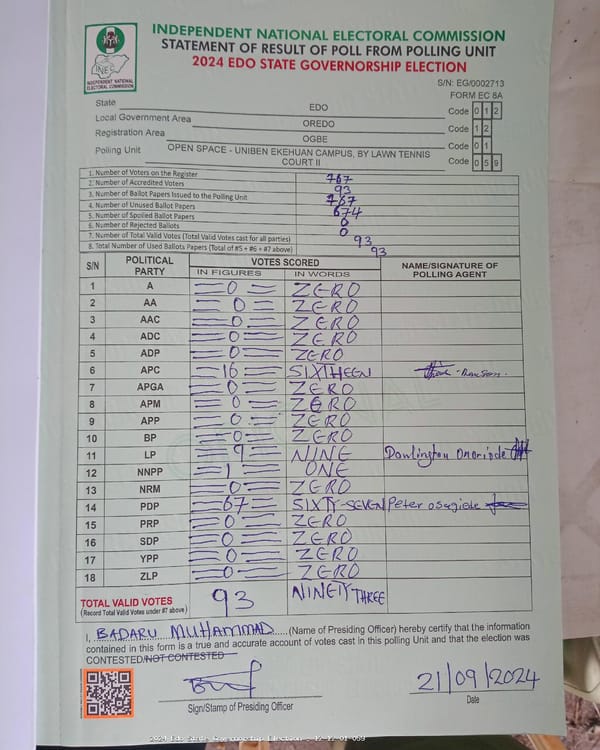 INDEPENDENT NATIONAL ELECTORAL COMMISSION
STATEMENT OF RESULT OF POLL FROM POLLING UNIT
2024 EDO STATE GOVERNORSHIP ELECTION
INEC
INDEPENDENT NATIONAL
ELECTORAL COMMISSION
S/N: EG/0002713
FORM EC 8A
State EDO Code 0 1 2
Local Government Area OREDO Code 1 2
Registration Area OGBE Code 0 1
Polling Unit OPEN SPACE - UNIBEN EKEHUAN CAMPUS, BY LAWN TENNIS COURT II Code 0 5 9
1. Number of Voters on the Register 767
2. Number of Accredited Voters 93
3. Number of Ballot Papers Issued to the Polling Unit 767
4. Number of Unused Ballot Papers 674
5. Number of Spoiled Ballot Papers 0
6. Number of Rejected Ballots 0
7. Number of Total Valid Votes (Total Valid Votes cast for all parties) 93
8. Total Number of Used Ballots Papers (Total of #5 + #6 + #7 above) 93
S/N POLITICAL PARTY VOTES SCORED NAME/SIGNATURE OF POLLING AGENT
IN FIGURES IN WORDS
1 A 0 ZERO
2 AA 0 ZERO
3 AAC 0 ZERO
4 ADC 0 ZERO
5 ADP 0 ZERO
6 APC 16 SIXTHEEN
7 APGA 0 ZERO
8 APM 0 ZERO
9 APP 0 ZERO
10 BP 0 ZERO
11 LP 9 NINE
12 NNPP 1 ONE
13 NRM 0 ZERO
14 PDP 67 SIXTY-SEVEN Peter osagiede
15 PRP 0 ZERO
16 SDP 0 ZERO
17 YPP 0 ZERO
18 ZLP 0 ZERO
TOTAL VALID VOTES 93 NINETY THREE
(Record Total Valid Votes under #7 above)
I, BADARU MUHAMMAD (Name of Presiding Officer) hereby certify that the information
contained in this form is a true and accurate account of votes cast in this polling Unit and that the election was
CONTESTED/NOT CONTESTED
21/09/2024
Sign/Stamp of Presiding Officer Date
2024 Edo State Governorship Election - 12-12-01-059